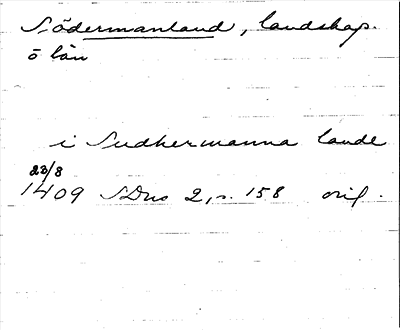 Södermanland, landskap.
o län
i Sudhermanna lande
23/8
1409 SDns 2, s. 158 orig.